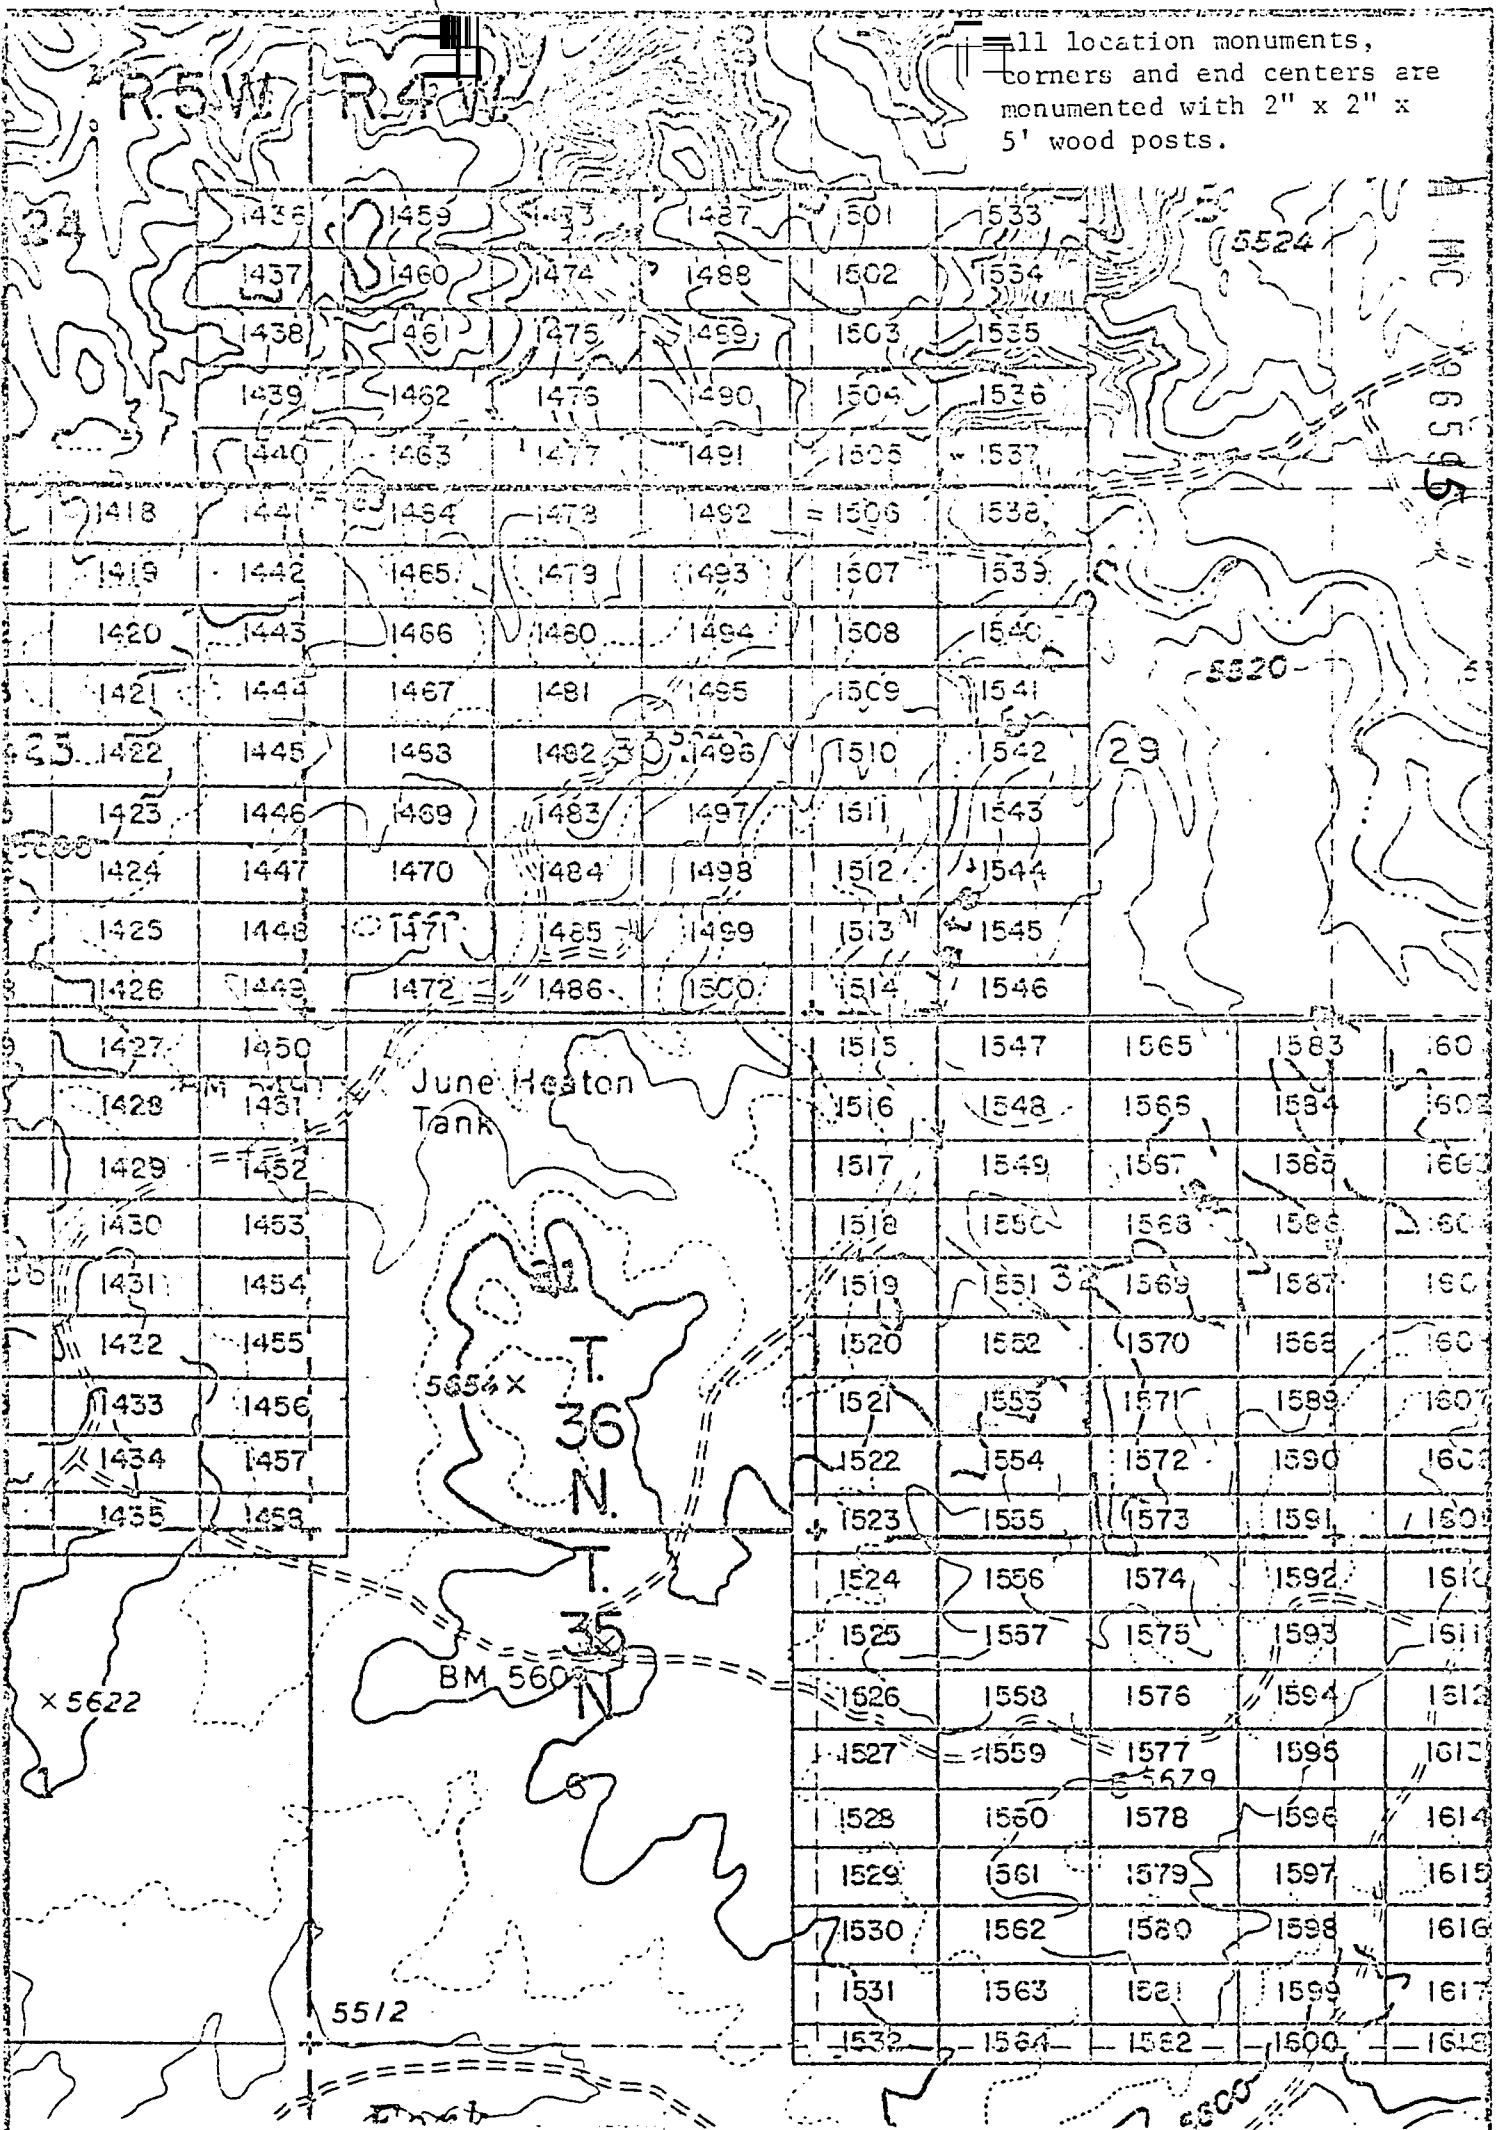 All location monuments,
corners and end centers are
monumented with 2" x 2" x
5' wood posts.
R.5W. R.4W.
24 1436 1459 1473 1487 1501 1533 5524
1437 1460 1474 1488 1502 1534
MC
1438 1461 1475 1489 1503 1535
1439 1462 1476 1490 1504 1536
1440 1463 1477 1491 1505 1537
1418 1441 1464 1478 1492 1506 1538
1419 1442 1465 1479 1493 1507 1539
1420 1443 1466 1480 1494 1508 1540
5520
1421 1444 1467 1481 1495 1509 1541
1422 1445 1468 1482 30 1496 1510 1542 29
1423 1446 1469 1483 1497 1511 1543
1424 1447 1470 1484 1498 1512 1544
1425 1448 1471 1485 1499 1513 1545
1426 1449 1472 1486 1500 1514 1546
1427 1450 1515 1547 1565 1583
June Heaton
Tank
1428 1451 1516 1548 1566 1584
1429 1452 1517 1549 1567 1585
1430 1453 1518 1550 1568 1586
31
1431 1454 1519 1551 32 1569 1587
1432 1455 1520 1552 1570 1588
T.
36
N.
5654
1433 1456 1521 1553 1571 1589 1607
1434 1457 1522 1554 1572 1590
1435 1458 1523 1555 1573 1591
T.
35
N
1524 1556 1574 1592 1610
1525 1557 1575 1593 1611
BM 560
5622
1526 1558 1576 1594 1612
1527 1559 1577 1595 1613
1 6 5679
1528 1560 1578 1596 1614
1529 1561 1579 1597 1615
1530 1562 1580 1598 1616
1531 1563 1581 1599 1617
5512
1532 1564 1582 1600 1618
5600